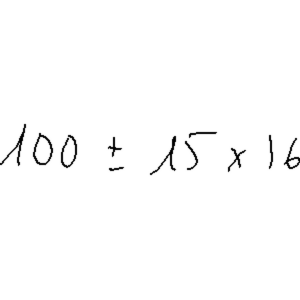 100 ± 15 x 16